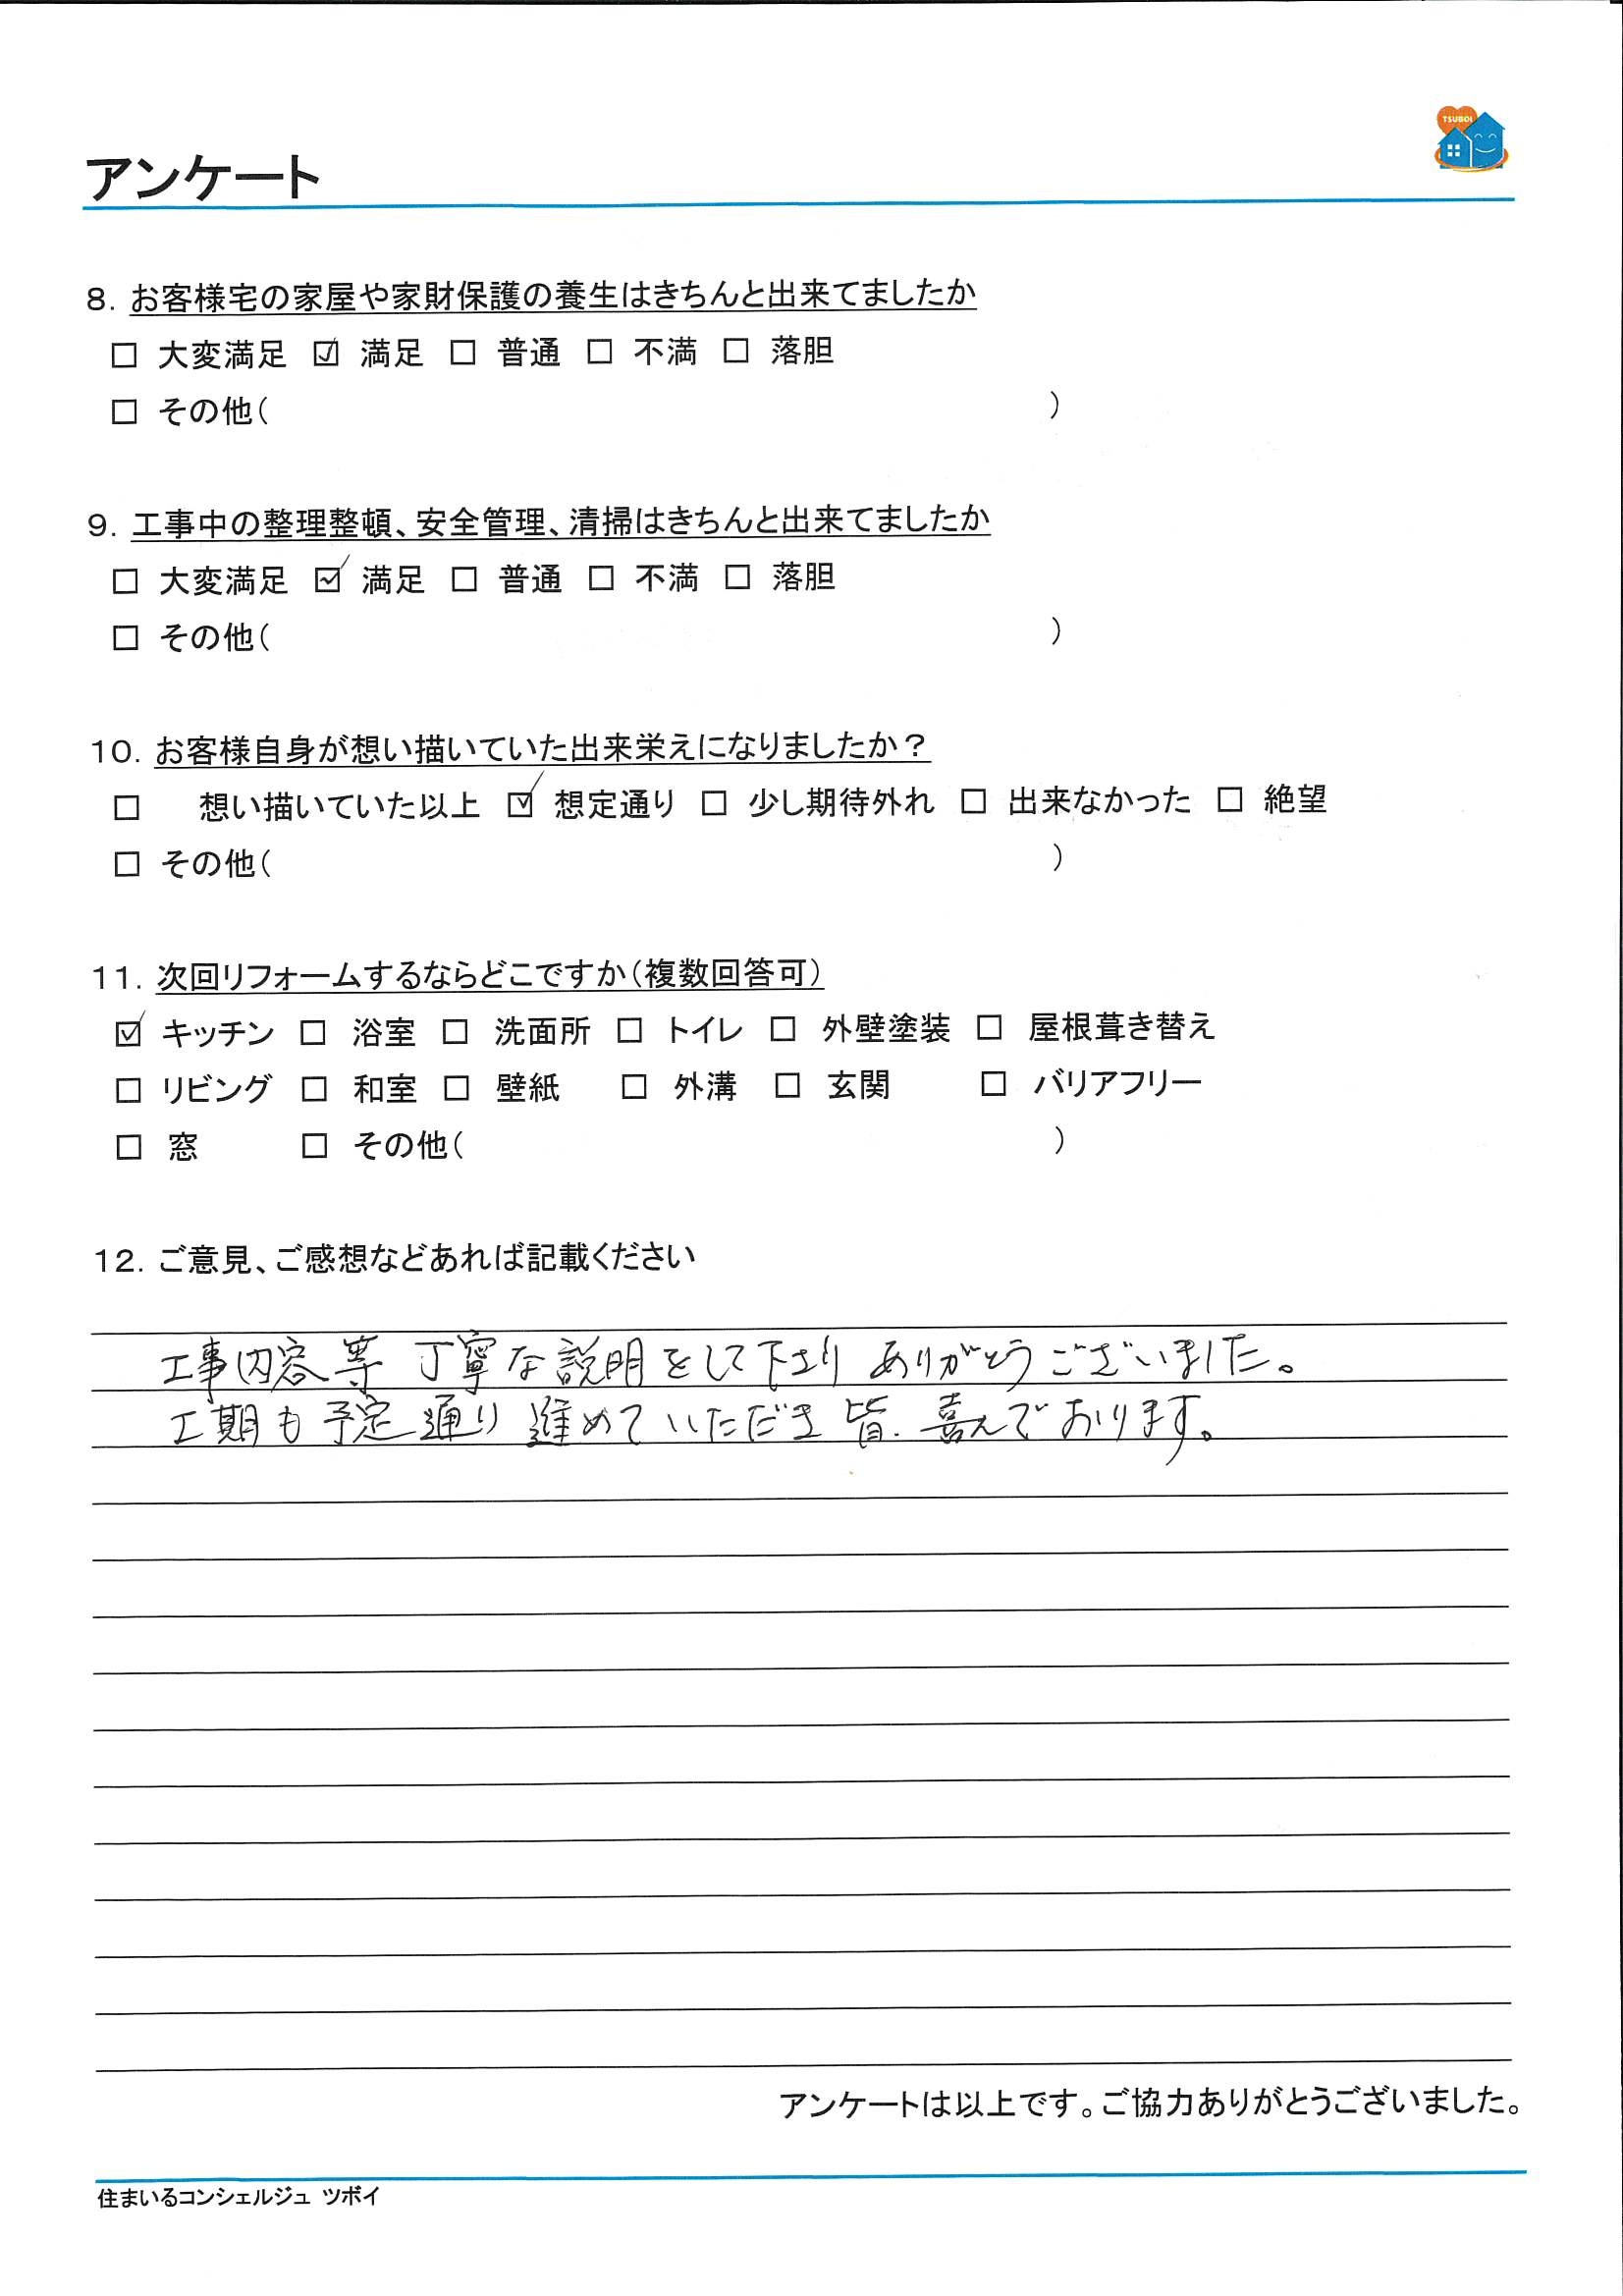 TSUBOI
アンケート
8. お客様宅の家屋や家財保護の養生はきちんと出来てましたか
☐ 大変満足 ☑ 満足 ☐ 普通 ☐ 不満 ☐ 落胆
☐ その他( )
9. 工事中の整理整頓、安全管理、清掃はきちんと出来てましたか
☐ 大変満足 ☑ 満足 ☐ 普通 ☐ 不満 ☐ 落胆
☐ その他( )
10. お客様自身が想い描いていた出来栄えになりましたか?
☐ 想い描いていた以上 ☑ 想定通り ☐ 少し期待外れ ☐ 出来なかった ☐ 絶望
☐ その他( )
11. 次回リフォームするならどこですか(複数回答可)
☑ キッチン ☐ 浴室 ☐ 洗面所 ☐ トイレ ☐ 外壁塗装 ☐ 屋根葺き替え
☐ リビング ☐ 和室 ☐ 壁紙 ☐ 外溝 ☐ 玄関 ☐ バリアフリー
☐ 窓 ☐ その他( )
12. ご意見、ご感想などあれば記載ください
工事内容等 丁寧な説明をして下さり ありがとうございました。
工期も予定通り進めていただき皆、喜んでおります。
アンケートは以上です。ご協力ありがとうございました。
住まいるコンシェルジュ ツボイ